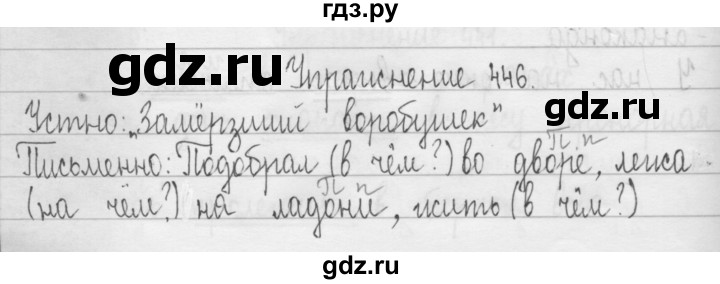 гдз.ру
gdz.ru
Упражнение 446.
Устно: „Замёрзший воробушек"
П.п
Письменно: Подобрал (в чём?) во дворе, лежа
П.п
(на чём?) на ладони, жить (в чём?)
gdz.ru